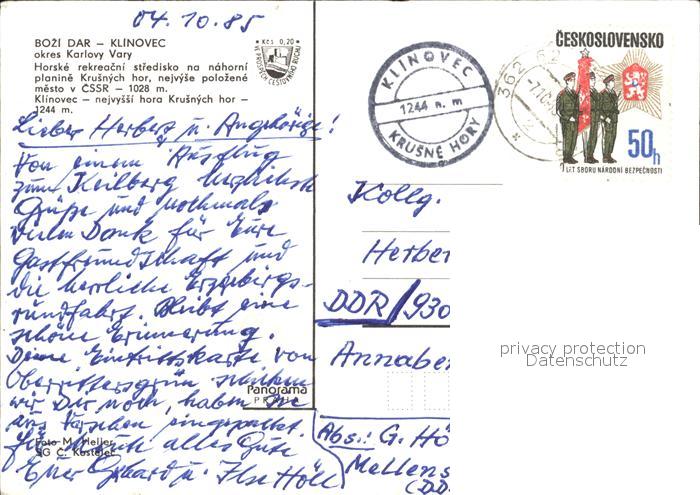 04.10.85
BOŽÍ DAR – KLÍNOVEC
okres Karlovy Vary
Horské rekreační středisko na náhorní
planině Krušných hor, nejvýše položené
město v ČSSR – 1028 m.
Klínovec – nejvyšší hora Krušných hor –
1244 m.
Kčs 0,20
VE PROSPĚCH CESTOVNÍHO RUCHU
Lieber Herbert u. Angehörige!
Von einem Ausflug
zum Keilberg herzlichst
Grüße und nochmals
vielen Dank für Eure
Gastfreundschaft und
die herrliche Erzgebirgs-
rundfahrt. Bleibt eine
schöne Erinnerung.
Deine Eintrittskarte von
Oberrittersgrün schicken
wir Dir noch, haben sie
aus Versehen eingepackt.
Für Euch alles Gute
Euer Gerhard u. Ilse Höll
Panorama
PRAHA
Foto M. Heller
SG C. Kostelec
KLÍNOVEC
1244 n. m
KRUŠNÉ HORY
362 62
ČESKOSLOVENSKO
50h
LET SBORU NÁRODNÍ BEZPEČNOSTI
Kollg.
Herber
DDR/930
Annaber
Abs.: G. Hö
Mellens
(DD
privacy protection
Datenschutz